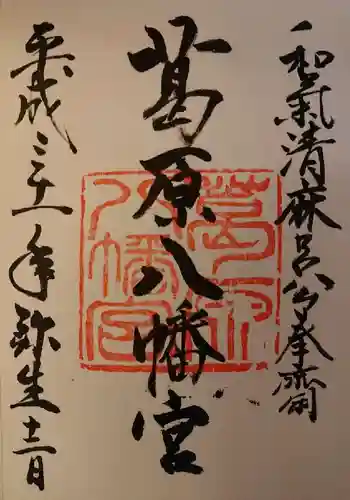 和氣清麻呂公奉齋
葛原八幡宮
平成三十一年弥生十二日
葛原
八幡宮